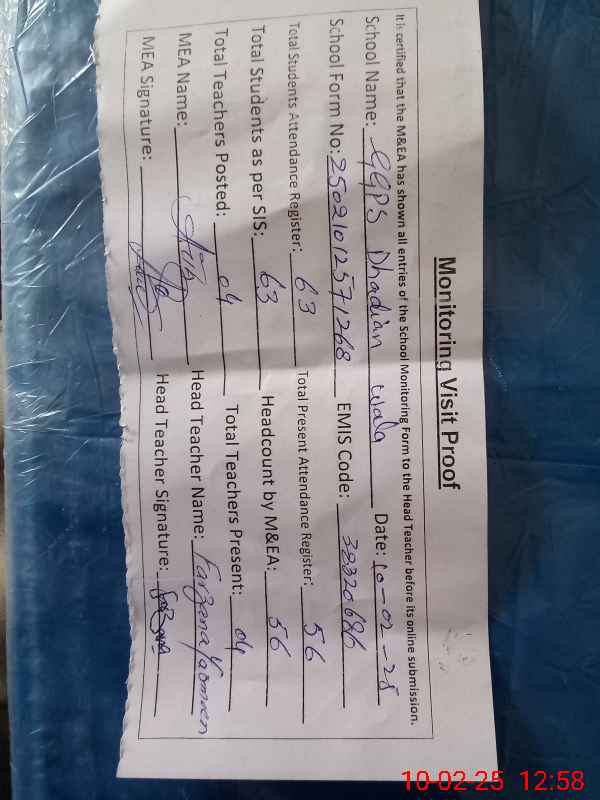 Monitoring Visit Proof
It is certified that the M&EA has shown all entries of the School Monitoring Form to the Head Teacher before its online submission.
School Name: GGPS Dhadian wala Date: 10-02-25
School Form No: 25021012571268 EMIS Code: 38320686
Total Students Attendance Register: 63 Total Present Attendance Register: 56
Total Students as per SIS: 63 Headcount by M&EA: 56
Total Teachers Posted: 04 Total Teachers Present: 04
MEA Name: Head Teacher Name: Farzana Yasmeen
MEA Signature: Head Teacher Signature: Farzana
10-02-25 12:58